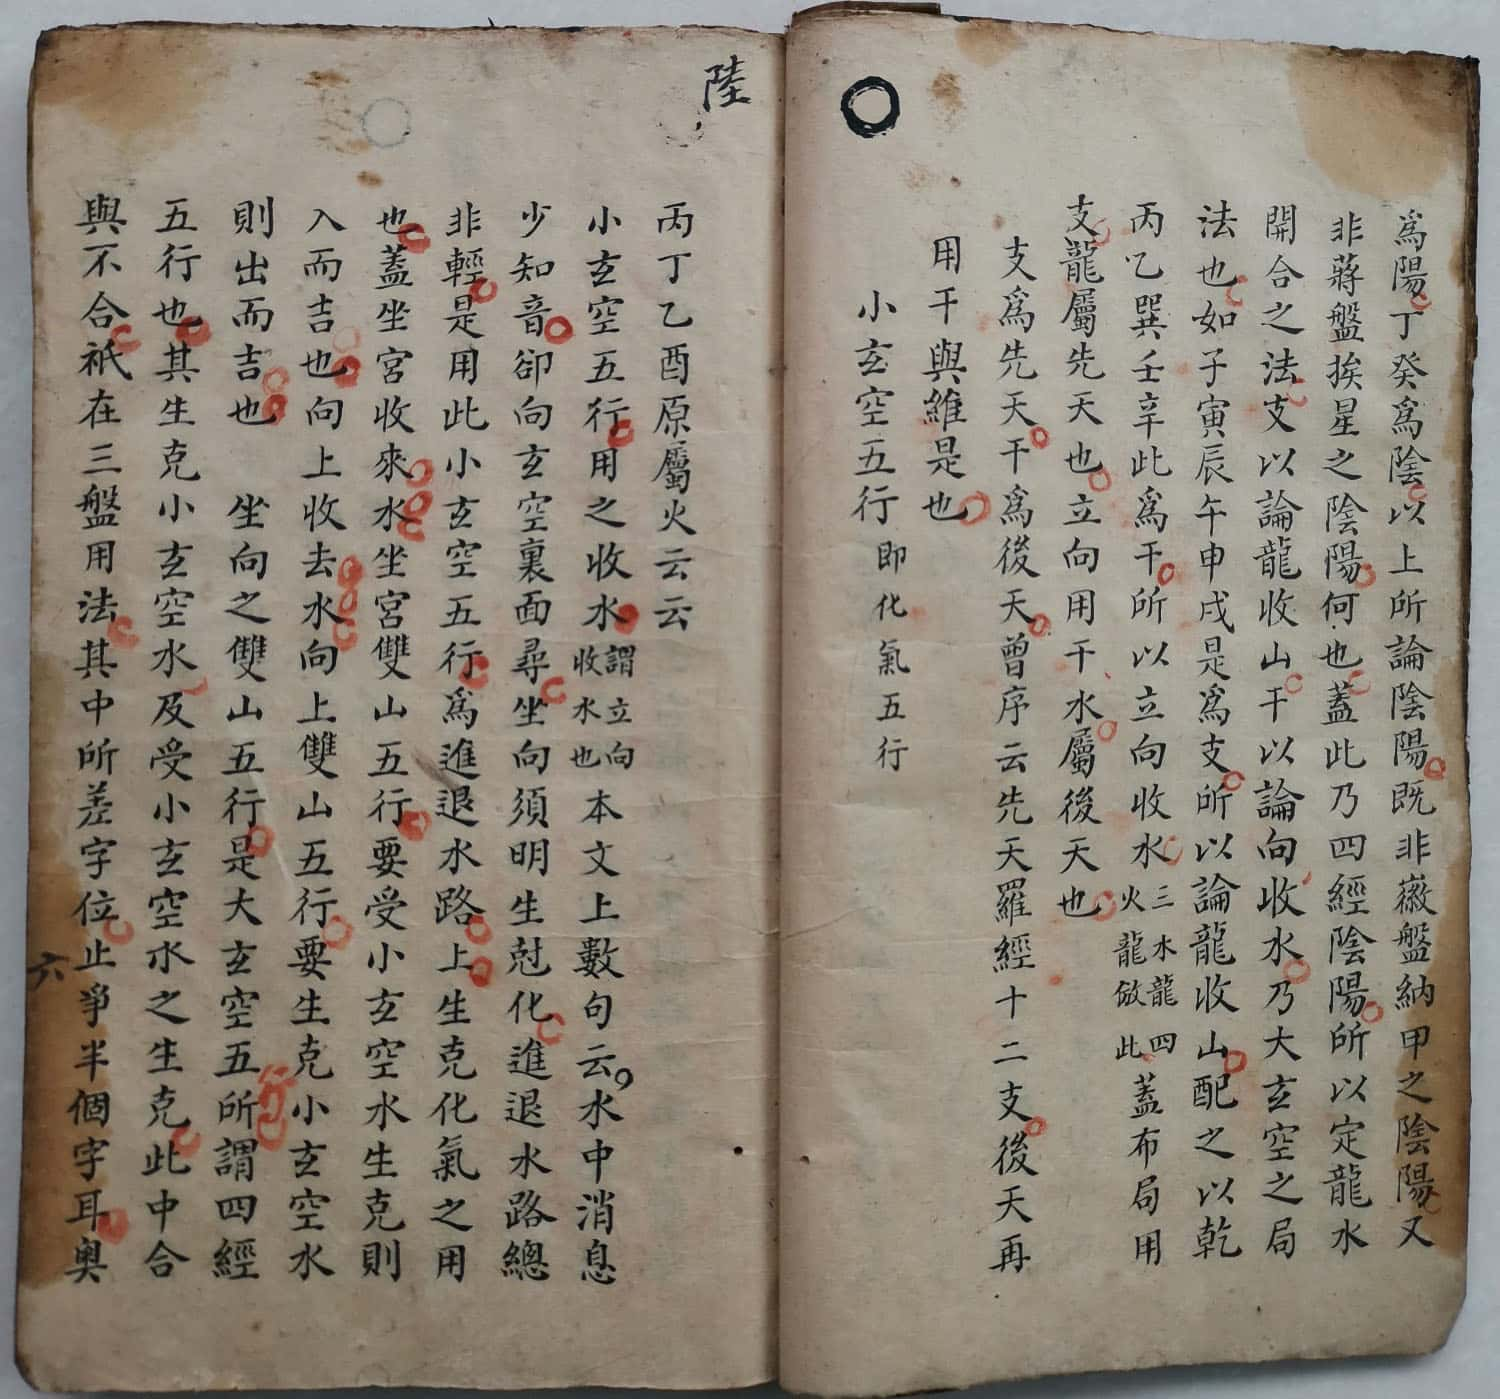 爲陽丁癸爲陰以上所論陰陽既非薇盤納甲之陰陽又
非蔣盤挨星之陰陽何也蓋此乃四經陰陽所以定龍水
開合之法支以論龍收山干以論向收水乃大玄空之局
法也如子寅辰午申戌是爲支所以論龍收山配之以乾
丙乙巽壬辛此爲干所以立向收水三水龍四火龍倣此蓋布局用
支龍屬先天也立向用干水屬後天也
支爲先天干爲後天曾序云先天羅經十二支後天再
用干與維是也
小玄空五行即化氣五行
陸
丙丁乙酉原屬火云云
小玄空五行用之收水謂立向收水也本文上數句云水中消息
少知音卻向玄空裏面尋坐向須明生尅化進退水路總
非輕是用此小玄空五行爲進退水路上生克化氣之用
也蓋坐宮收來水坐宮雙山五行要受小玄空水生克則
入而吉也向上收去水向上雙山五行要生克小玄空水
則出而吉也 坐向之雙山五行是大玄空五所謂四經
五行也其生克小玄空水及受小玄空水之生克此中合
與不合祇在三盤用法其中所差字位止爭半個字耳奧
六